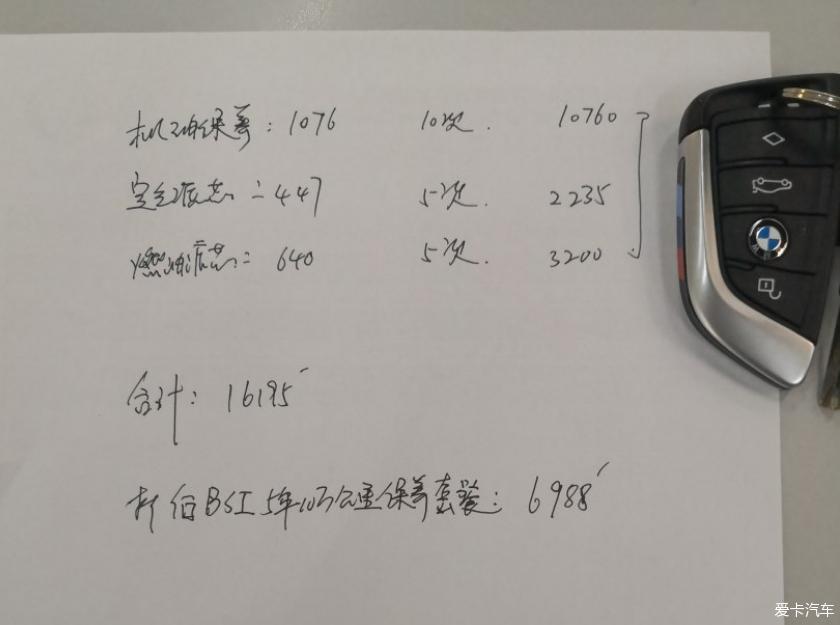 机油保养：1076 10次. 10760
空气滤芯：447 5次. 2235
燃油滤芯：640 5次. 3200
合计：16195
打包BSI 5年10万公里保养套装：6988
BMW
爱卡汽车